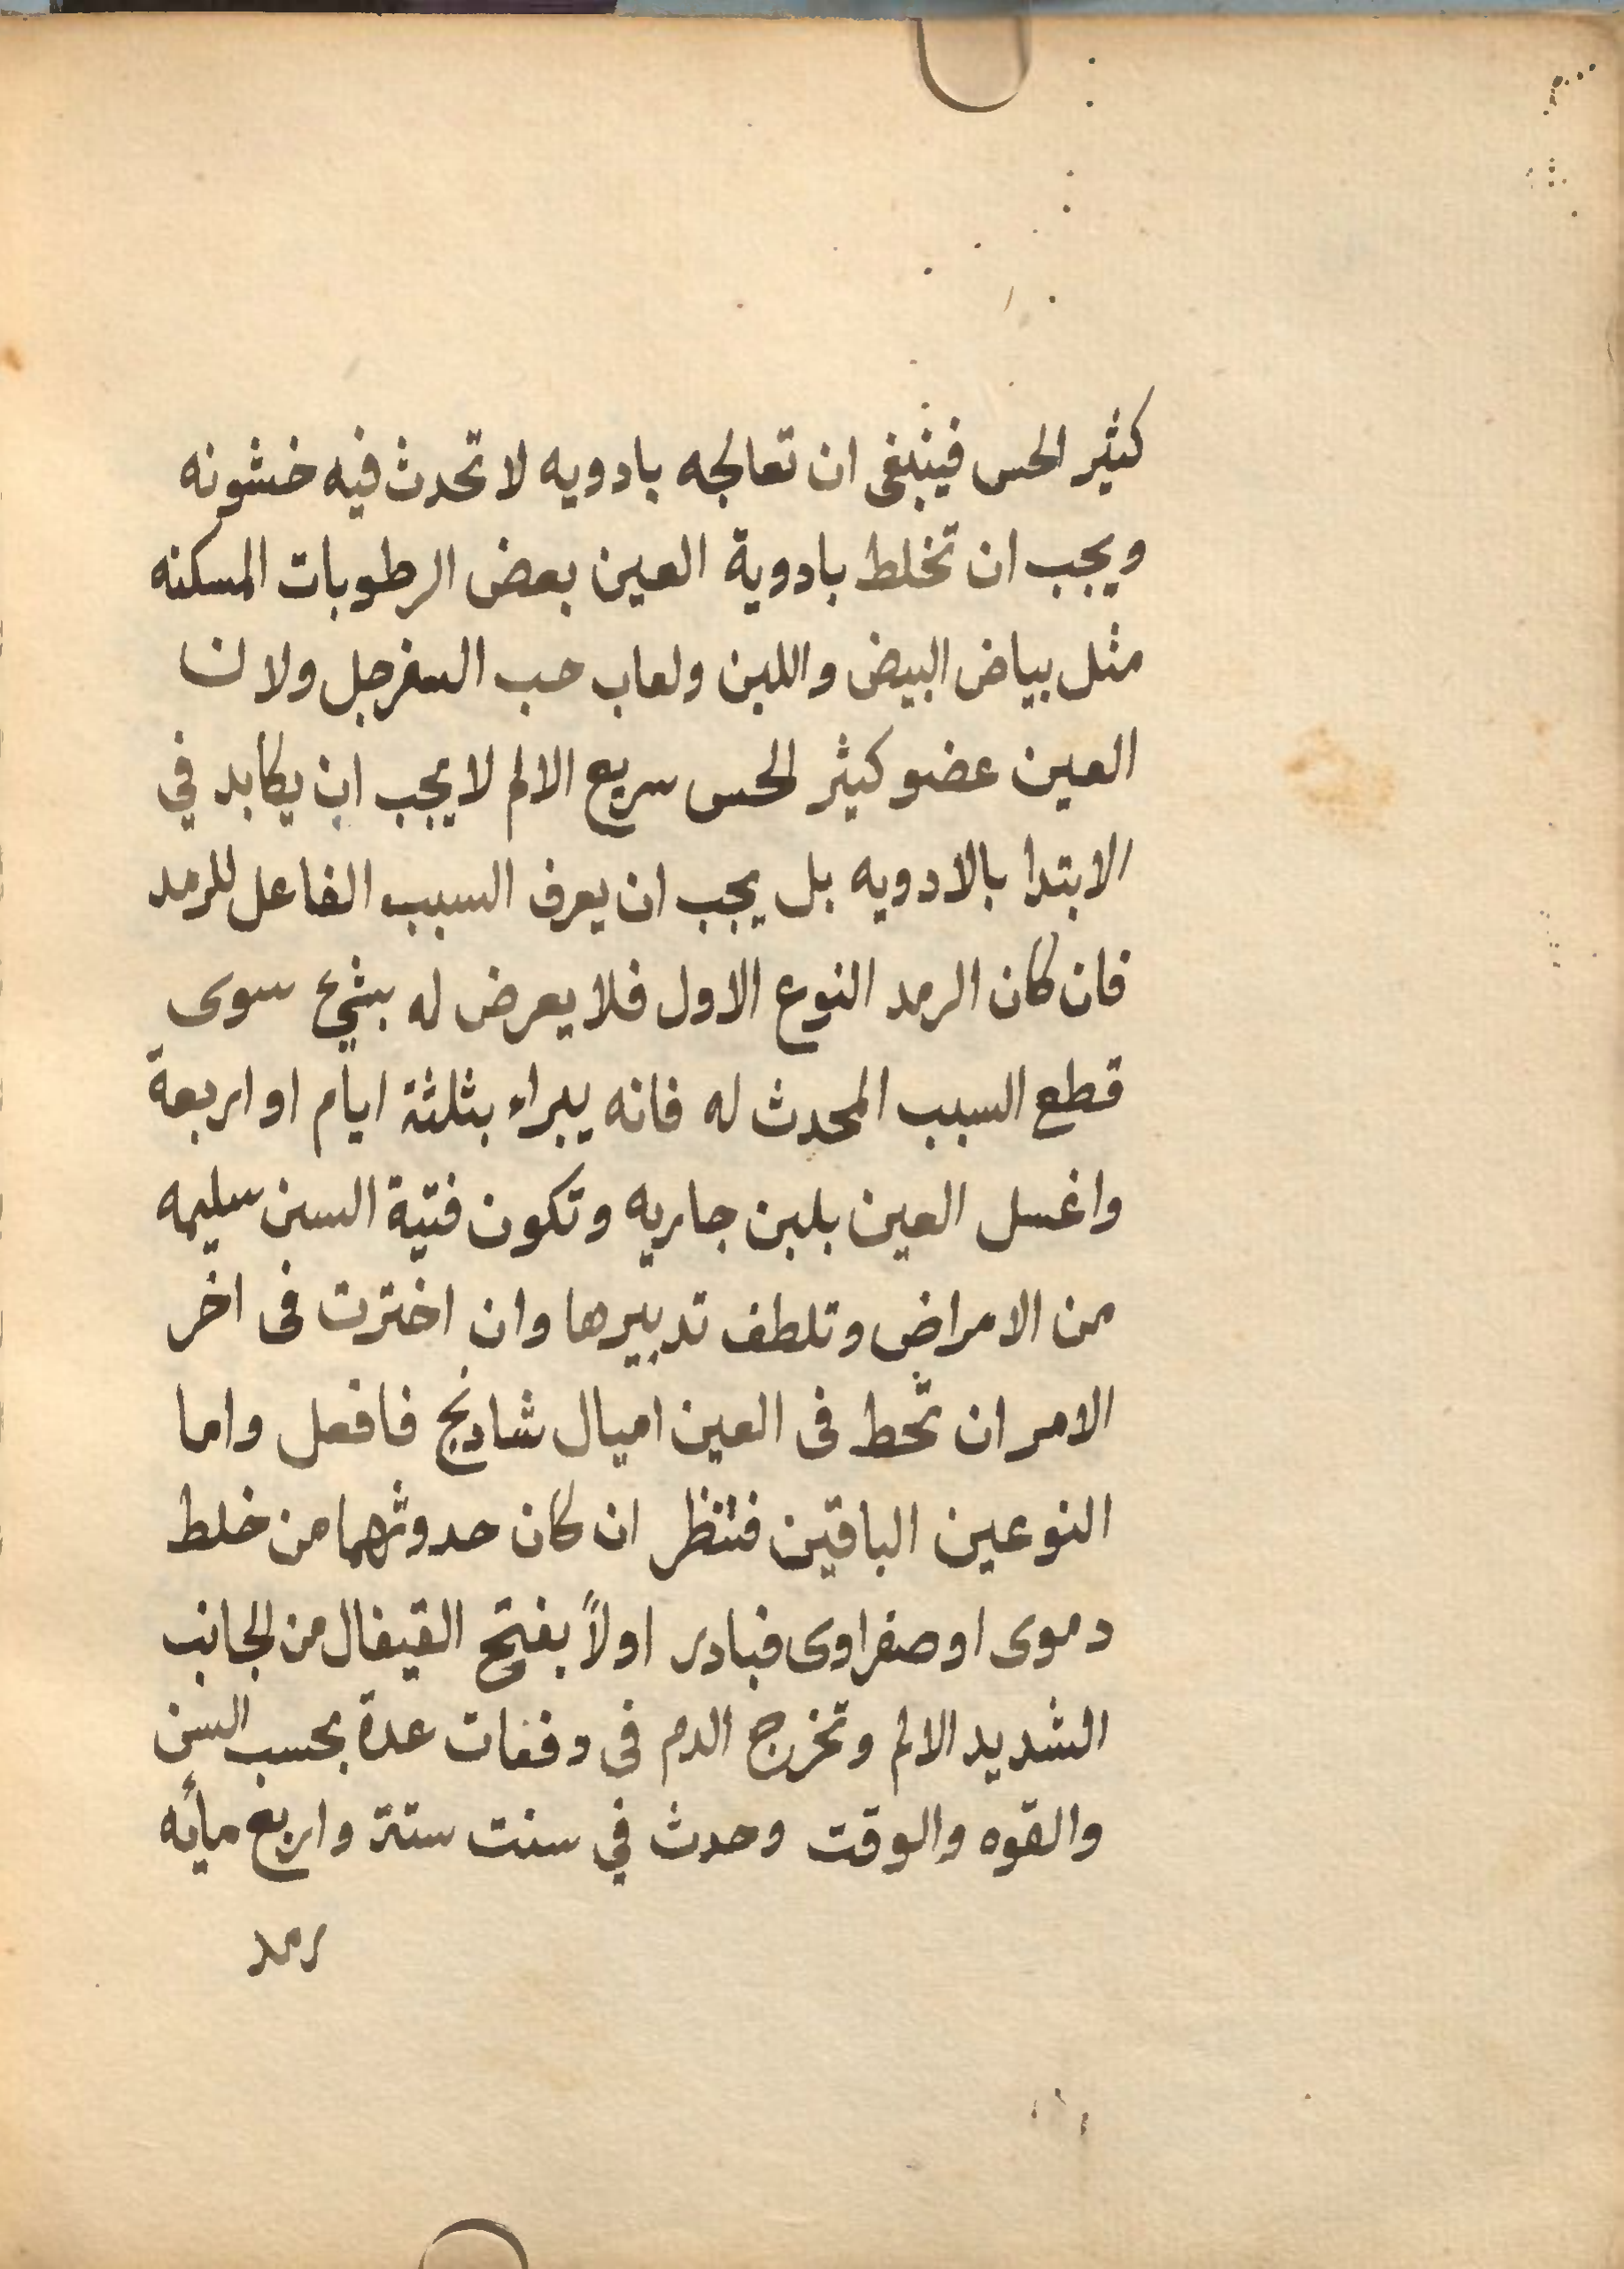 كثير الحس فينبغى ان تعالجه بادويه لا تحدث فيه خشونه
ويجب ان تخلط بادوية العين بعض الرطوبات المسكنه
مثل بياض البيض واللبن ولعاب حب السفرجل ولان
العين عضو كثير الحس سريع الالم لا يجب ان يكابد في
الابتدا بالادويه بل يجب ان يعرف السبب الفاعل للرمد
فان كان الرمد النوع الاول فلا يعرض له بشيء سوى
قطع السبب المحدث له فانه يبراء بثلثة ايام او اربعة
واغسل العين بلبن جاريه وتكون فتية السن سليمه
من الامراض وتلطف تدبيرها وان اخترت فى اخر
الامر ان تحط فى العين اميال شادنج فافعل واما
النوعين الباقين فتنظر ان كان حدوثهما من خلط
دموى او صفراوى فبادر اولاً بفتح القيفال من الجانب
الشديد الالم وتخرج الدم فى دفعات عدة بحسب السن
والقوه والوقت وحدث في سنت ستة واربع مأيه
رمد